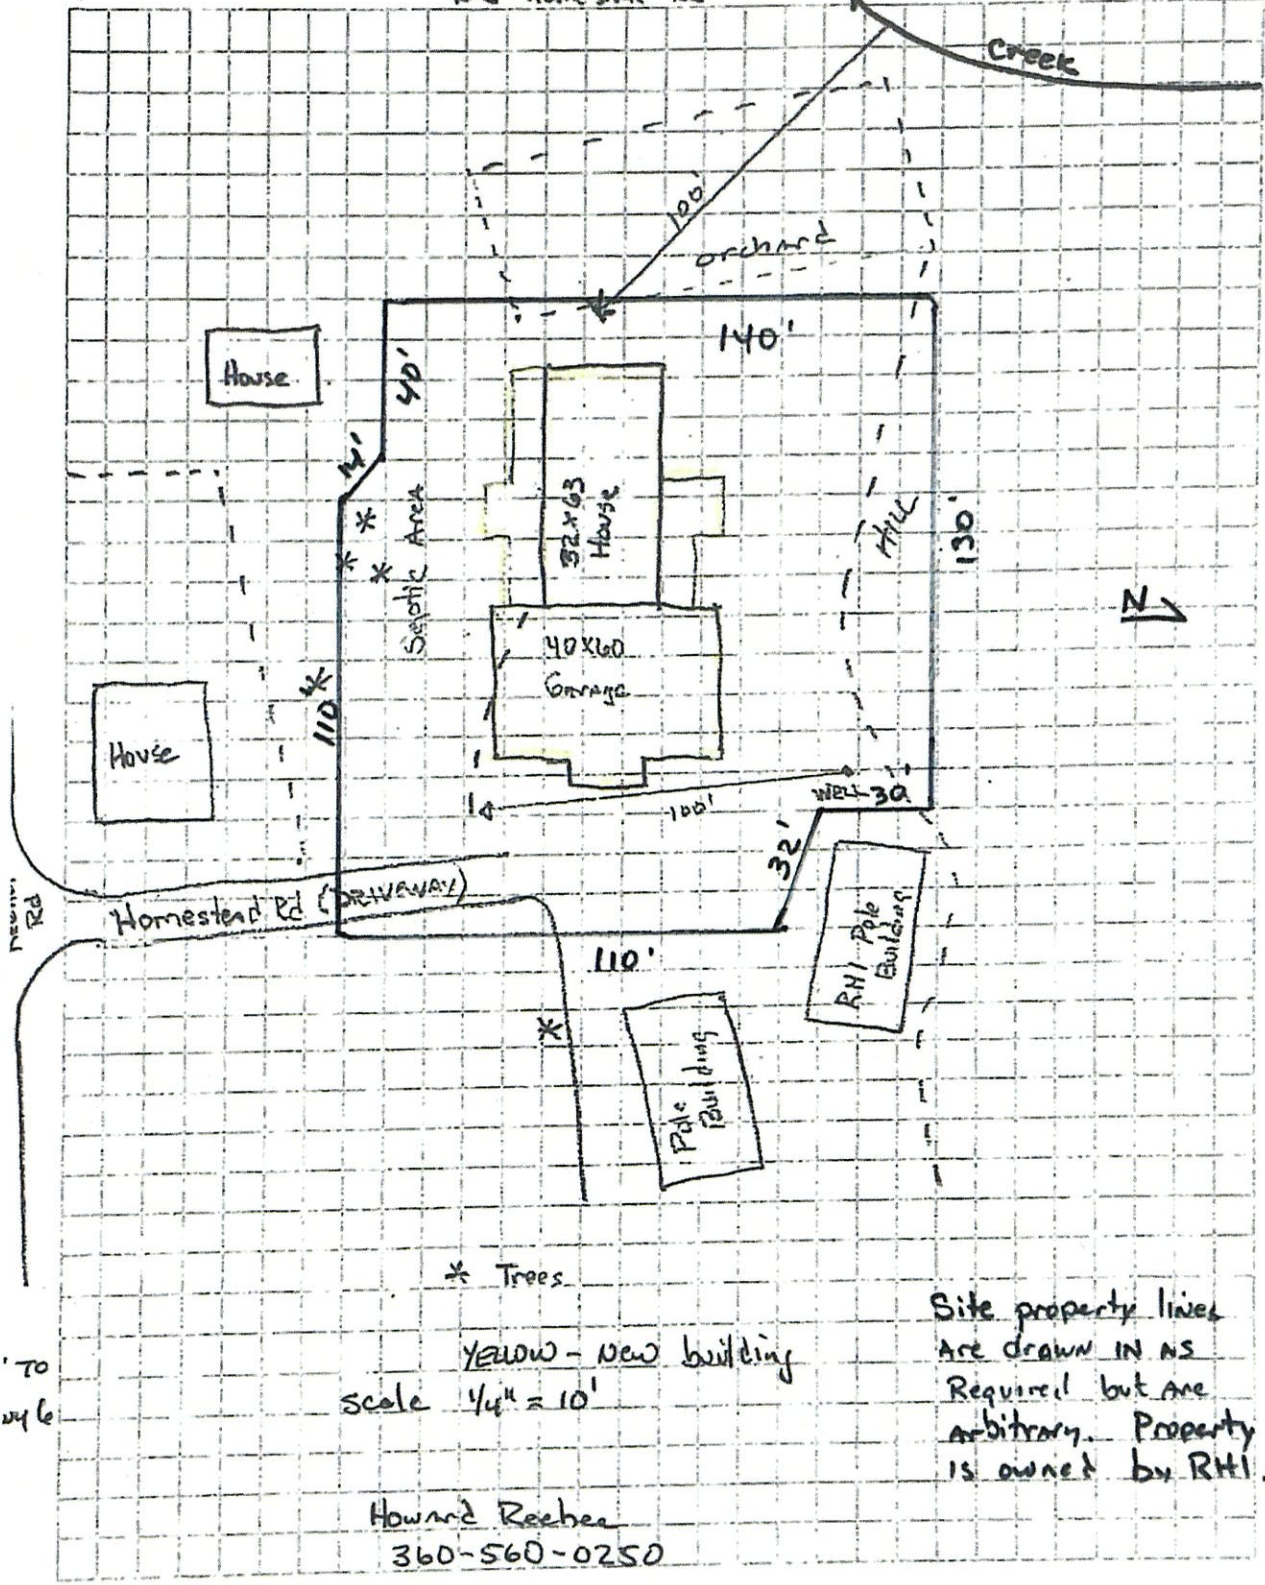 Creek
100'
orchard
140'
House
40'
14'
Septic Area
32x63
House
HILL
130'
N
40x60
Garage
110'
House
WELL
30
100'
32'
Homestead Rd (DRIVEWAY)
Rd
110'
RHI Pole
Building
Pole
Building
* Trees
YELLOW - New building
scale 1/4" = 10'
Site property lines
Are drawn IN AS
Required but Are
Arbitrary. Property
is owned by RHI.
' TO
Howard Reebee
360-560-0250